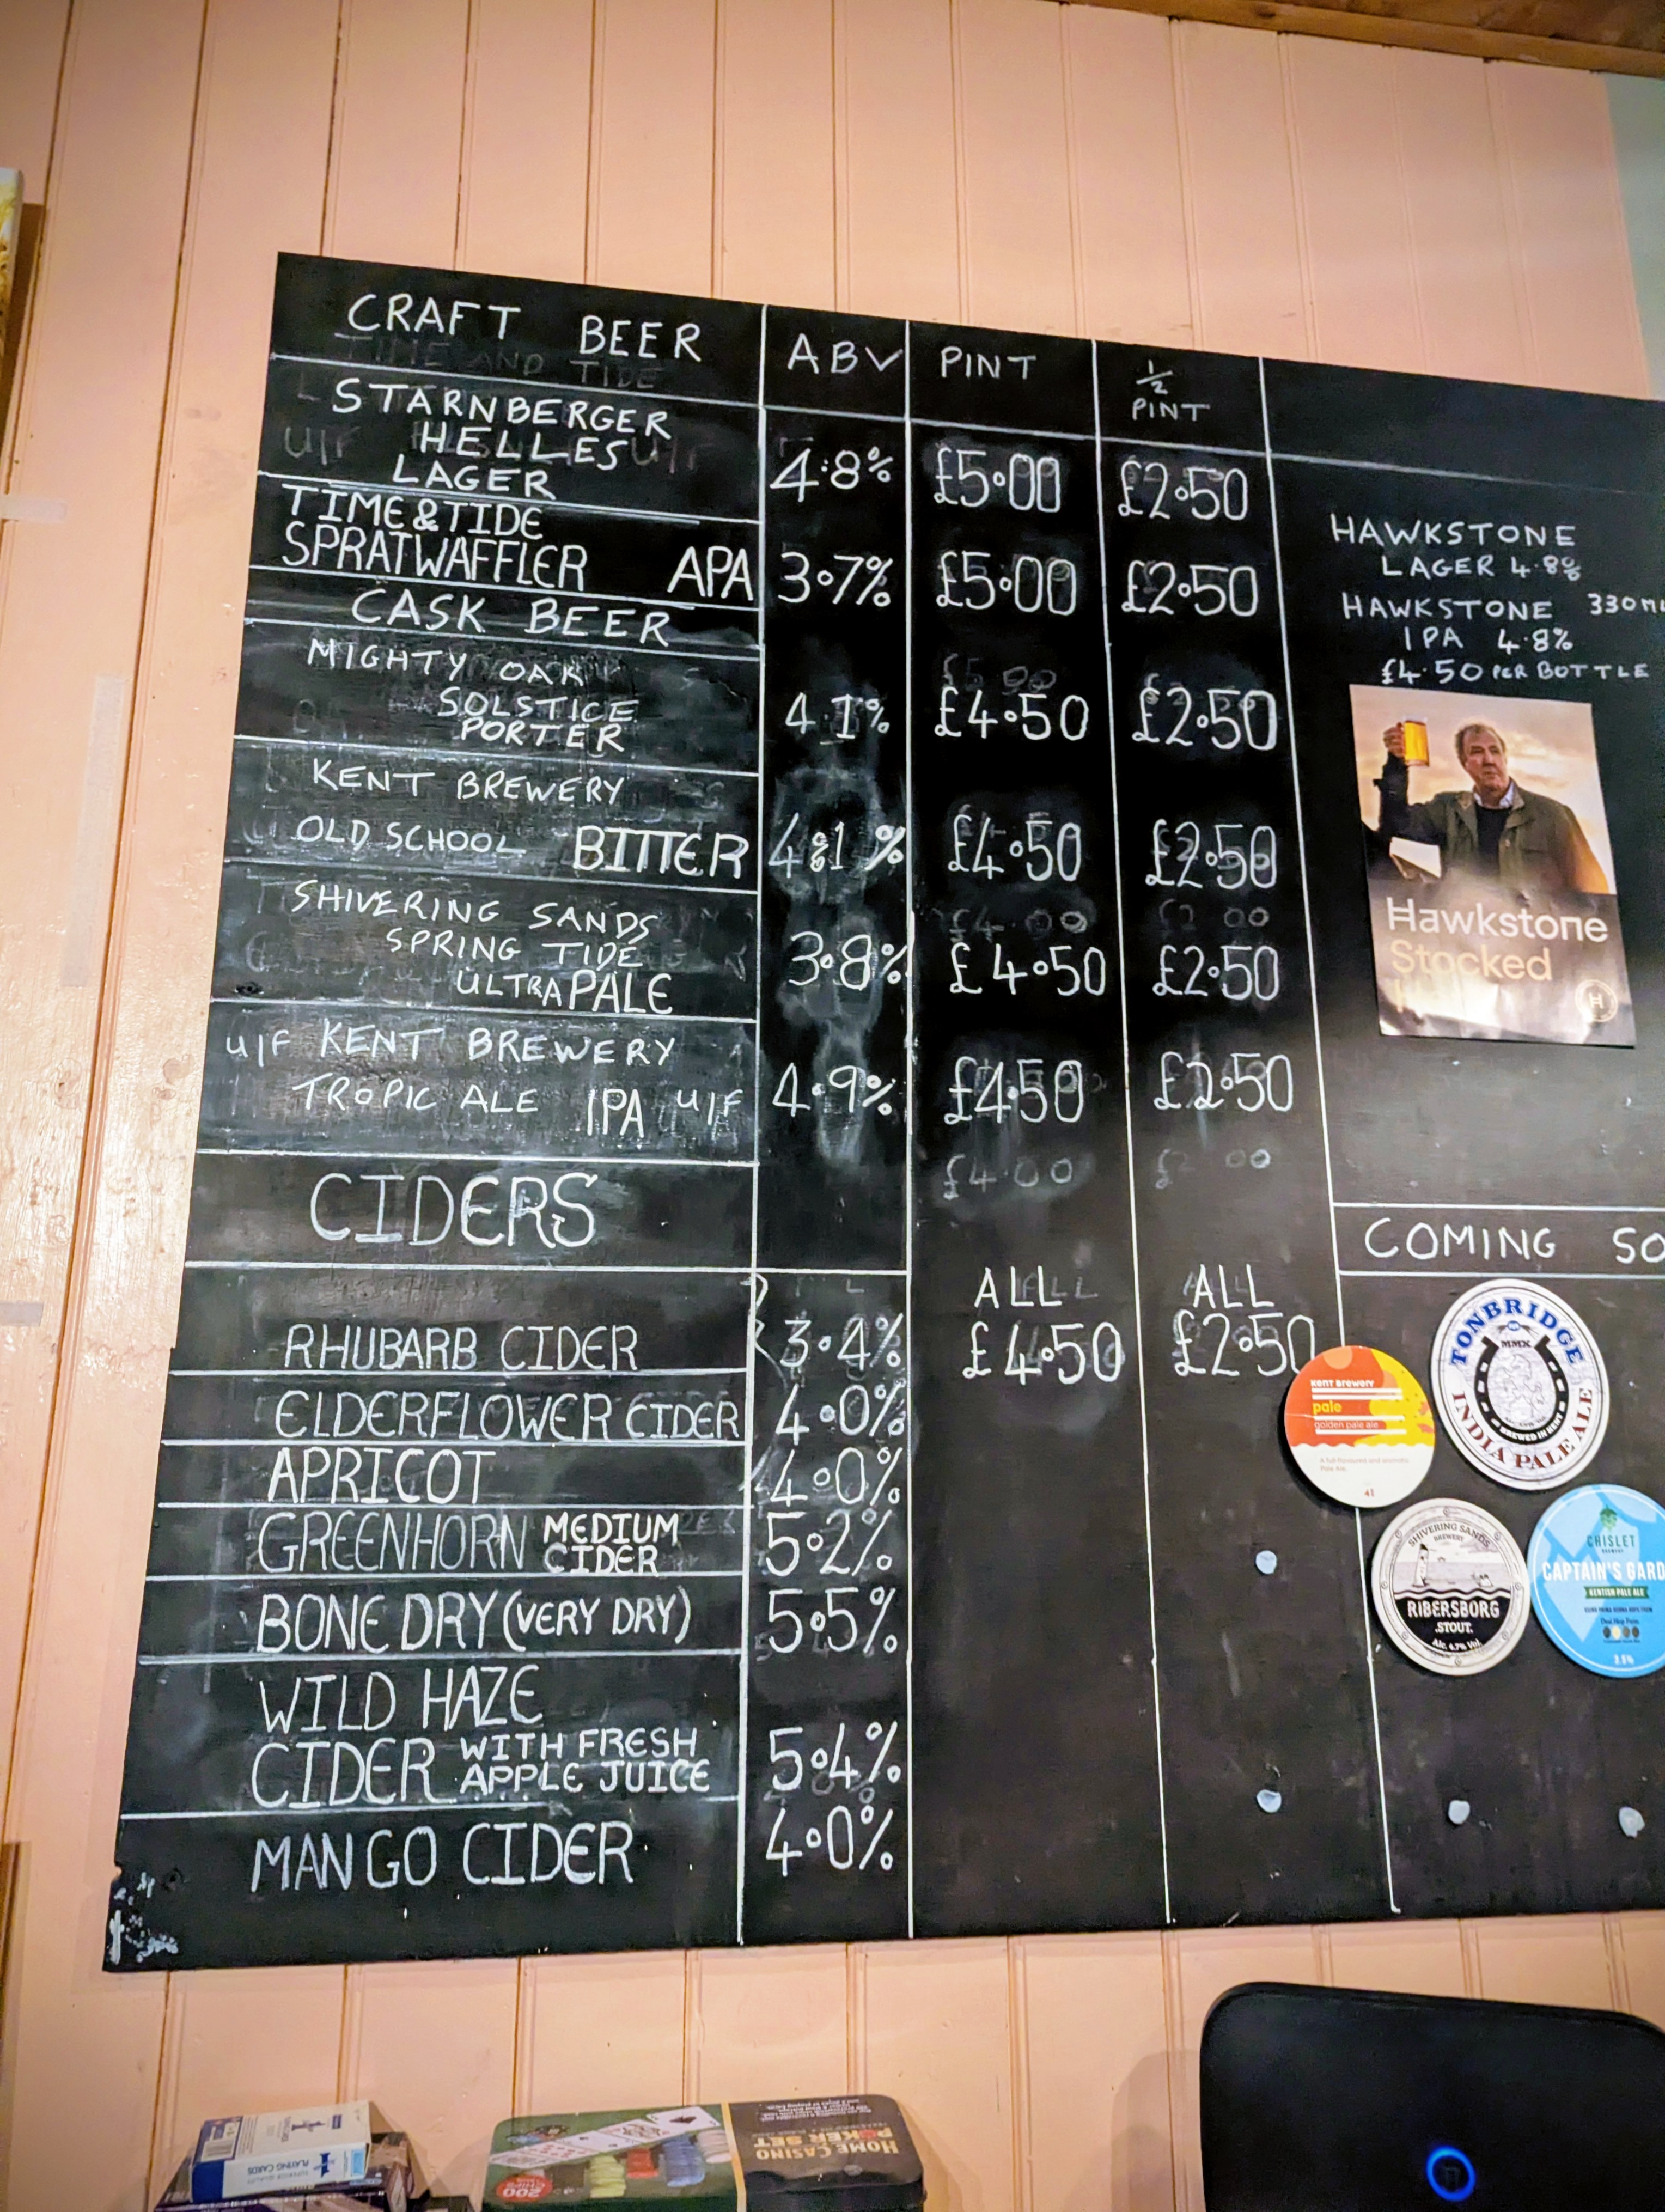 CRAFT BEER ABV PINT 1/2 PINT
STARNBERGER
HELLES
LAGER 4.8% £5.00 £2.50
TIME&TIDE
SPRATWAFFLER APA 3.7% £5.00 £2.50
CASK BEER
MIGHTY OAK
SOLSTICE
PORTER 4.1% £4.50 £2.50
KENT BREWERY
OLD SCHOOL BITTER 4.1% £4.50 £2.50
SHIVERING SANDS
SPRING TIDE
ULTRA PALE 3.8% £4.50 £2.50
U/F KENT BREWERY
TROPIC ALE IPA U/F 4.9% £4.50 £2.50
CIDERS
ALL ALL
RHUBARB CIDER 3.4% £4.50 £2.50
ELDERFLOWER CIDER 4.0%
APRICOT 4.0%
GREENHORN MEDIUM CIDER 5.2%
BONE DRY (VERY DRY) 5.5%
WILD HAZE
CIDER WITH FRESH APPLE JUICE 5.4%
MANGO CIDER 4.0%
HAWKSTONE
LAGER 4.8%
HAWKSTONE 330ML
IPA 4.8%
£4.50 PER BOTTLE
Hawkstone
Stocked
H
COMING SO
TONBRIDGE
MMX
BREWED IN KENT
INDIA PALE ALE
KENT BREWERY
pale
golden pale ale
A full flavoured and aromatic
Pale Ale.
41
SHIVERING SANDS
BREWERY
RIBERSBORG
STOUT.
Alc. 4.7% Vol.
CHISLET
CAPTAIN'S GARD
KENTISH PALE ALE
3.8%
PLAYING CARDS
HOME CASINO
POKER SET
200